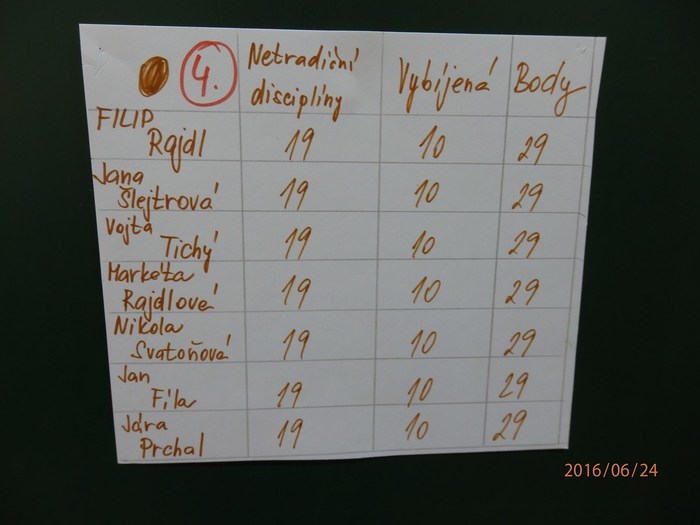 4.
Netradiční
disciplíny
Vybíjená
Body
FILIP
Rajdl
19
10
29
Jana
Šlejtrová
19
10
29
Vojta
Tichý
19
10
29
Markéta
Rajdlové
19
10
29
Nikola
Svatoňová
19
10
29
Jan
Fíla
19
10
29
Jára
Prchal
19
10
29
2016/06/24